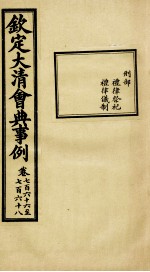 欽定大清會典事例
卷七百六十六至
七百六十八
刑部
禮律祭祀
禮律儀制